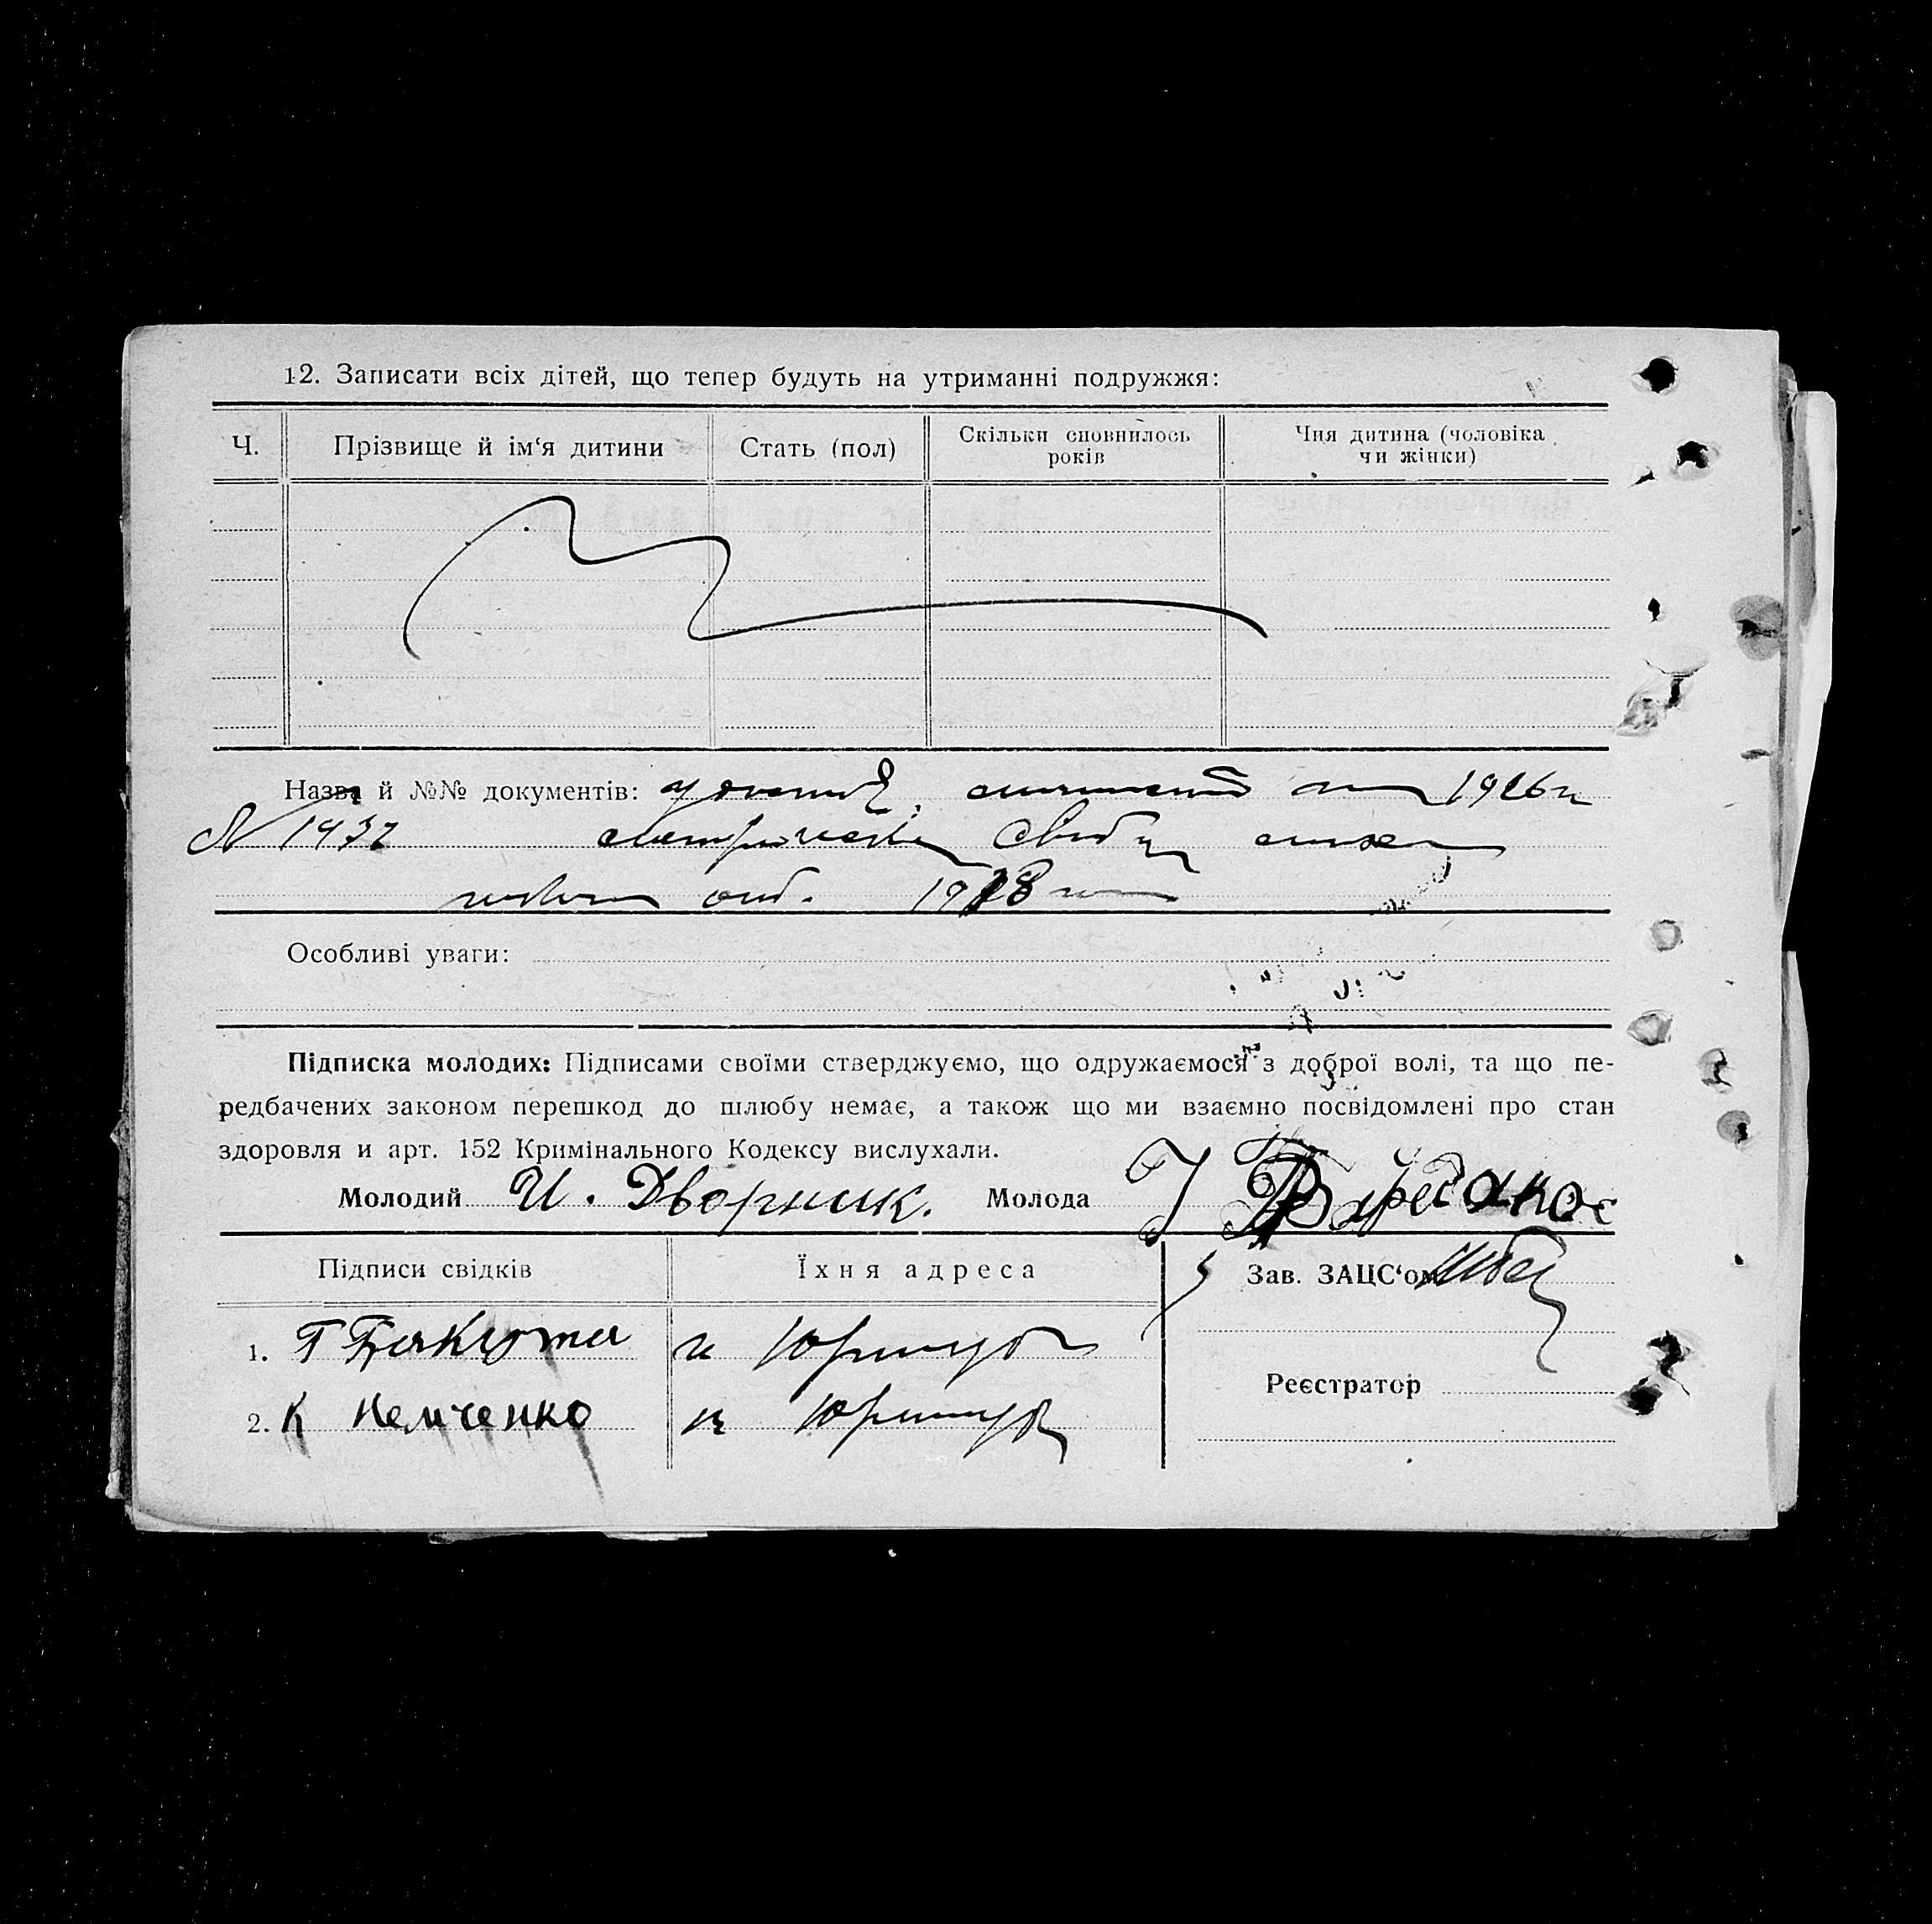 12. Записати всіх дітей, що тепер будуть на утриманні подружжя:
Ч. Прізвище й ім‘я дитини Стать (пол) Скільки сповнилось років Чия дитина (чоловіка чи жінки)
Назва й №№ документів: 1926
N 1432
1918
Особливі уваги:
Підписка молодих: Підписами своїми стверджуємо, що одружаємося з доброї волі, та що пе-
редбачених законом перешкод до шлюбу немає, а також що ми взаємно посвідомлені про стан
здоровля и арт. 152 Кримінального Кодексу вислухали.
Молодий И. Дворник. Молода
Підписи свідків Їхня адреса Зав. ЗАЦС‘ом
1.
Реєстратор
2. К Немченко